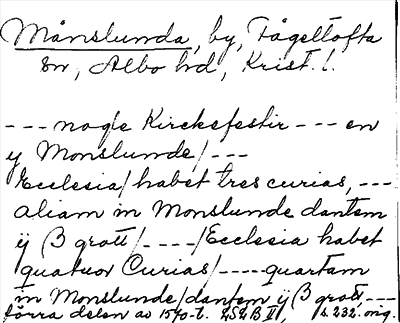 Månslunda, by, Fågeltofta
sn, Albo hd, Krist. l.
--- nogle Kirckefestir --- en
y Monslunde/---
Ecclesia/habet tres curias, ---
aliam in Monslunde dantem
ij β grott/----/Ecclesia habet
quatuor Curias/----quartam
in Monslunde/dantem ij β grott, ---
förra delen av 1570-t. LSLB II, s. 232. orig.